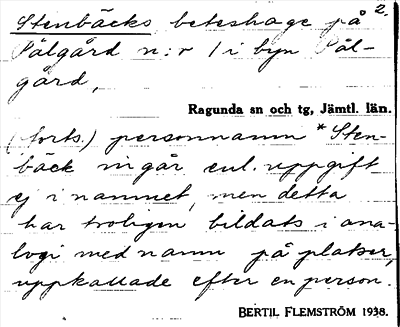 Stenbäcks beteshage på 2.
Pålgård n:r 1 i byn Pål-
gård,
Ragunda sn och tg, Jämtl. län.
(forts.) personnamn *Sten-
bäck ingår enl. uppgift
ej i namnet, men detta
har troligen bildats i ana-
logi med namn på platser,
uppkallade efter en person.
BERTIL FLEMSTRÖM 1938.